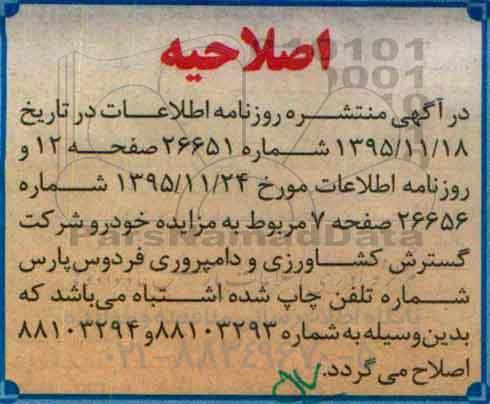 اصلاحیه
در آگهی منتشره روزنامه اطلاعات در تاریخ
۱۳۹۵/۱۱/۱۸ شماره ۲۶۶۵۱ صفحه ۱۲ و
روزنامه اطلاعات مورخ ۱۳۹۵/۱۱/۲۴ شماره
۲۶۶۵۶ صفحه ۷ مربوط به مزایده خودرو شرکت
ParsNamadData
گسترش کشاورزی و دامپروری فردوس پارس
شماره تلفن چاپ شده اشتباه می‌باشد که
بدین‌وسیله به شماره ۸۸۱۰۳۲۹۳ و ۸۸۱۰۳۲۹۴
۰۲۱-۸۸۳۴۹۶۷۰-۵
اصلاح می گردد.